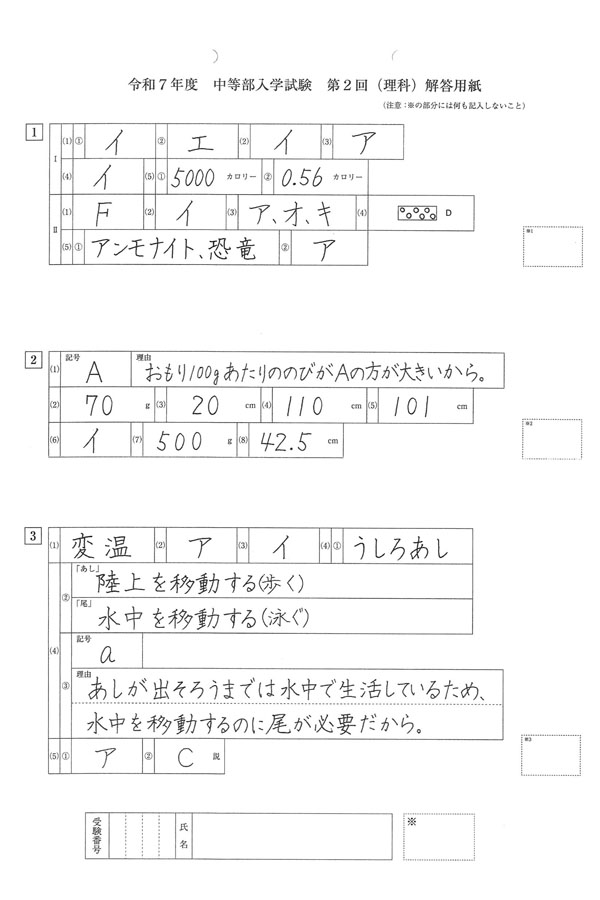 令和7年度 中等部入学試験 第2回(理科)解答用紙
(注意:※の部分には何も記入しないこと)
1
I (1) ① イ ② エ (2) イ (3) ア
(4) イ (5) ① 5000 カロリー ② 0.56 カロリー
II (1) F (2) イ (3) ア、オ、キ (4) D
(5) ① アンモナイト、恐竜 ② ア
※1
2
(1) 記号 A 理由 おもり100gあたりののびがAの方が大きいから。
(2) 70 g (3) 20 cm (4) 110 cm (5) 101 cm
(6) イ (7) 500 g (8) 42.5 cm
※2
3
(1) 変温 (2) ア (3) イ (4) ① うしろあし
② 「あし」 陸上を移動する(歩く)
「尾」 水中を移動する(泳ぐ)
(4) 記号 a
③ 理由 あしが出そろうまでは水中で生活しているため、
水中を移動するのに尾が必要だから。
(5) ① ア ② C 説
※3
受験番号 氏名 ※